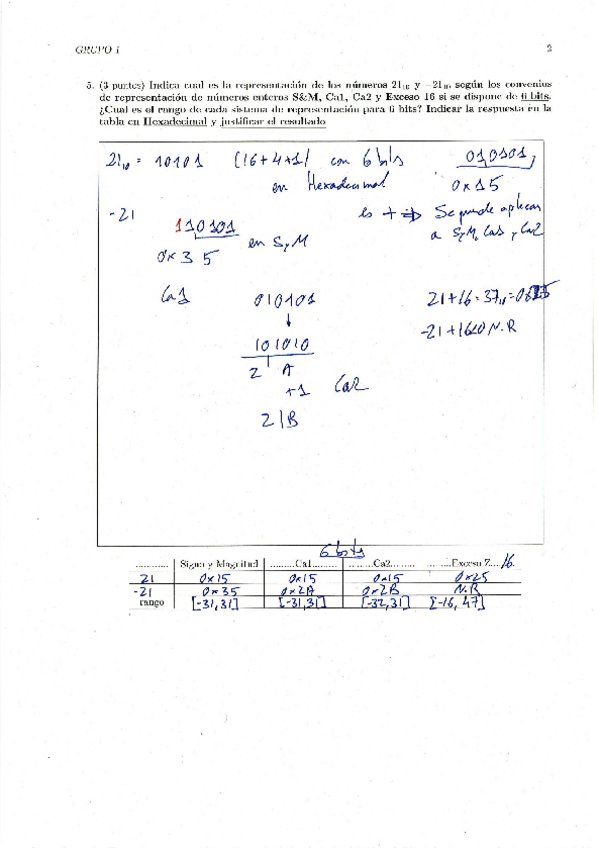 GRUPO 1 2
5. (3 puntos) Indica cual es la representación de los números 21₁₀ y −21₁₀ según los convenios
de representación de números enteros S&M, Ca1, Ca2 y Exceso 16 si se dispone de 6 bits.
¿Cual es el rango de cada sistema de representación para 6 bits? Indicar la respuesta en la
tabla en Hexadecimal y justificar el resultado
21₁₀ = 10101 (16+4+1) con 6 bits 010101,
en Hexadecimal 0x15
-21 es + ⇒ Se puede aplicar
110101 en S y M a S y M, Ca1 y Ca2
0x35
Ca1 010101 21+16=37₁₀=0x25
↓ -21+16<0 N.R
101010
2 A
+1 Ca2
2|B
6 bits
............ Signo y Magnitud .........Ca1......... .........Ca2......... .........Exceso Z....16.
21 0x15 0x15 0x15 0x25
-21 0x35 0x2A 0x2B N.R
rango [-31,31] [-31,31] [-32,31] [-16, 47]